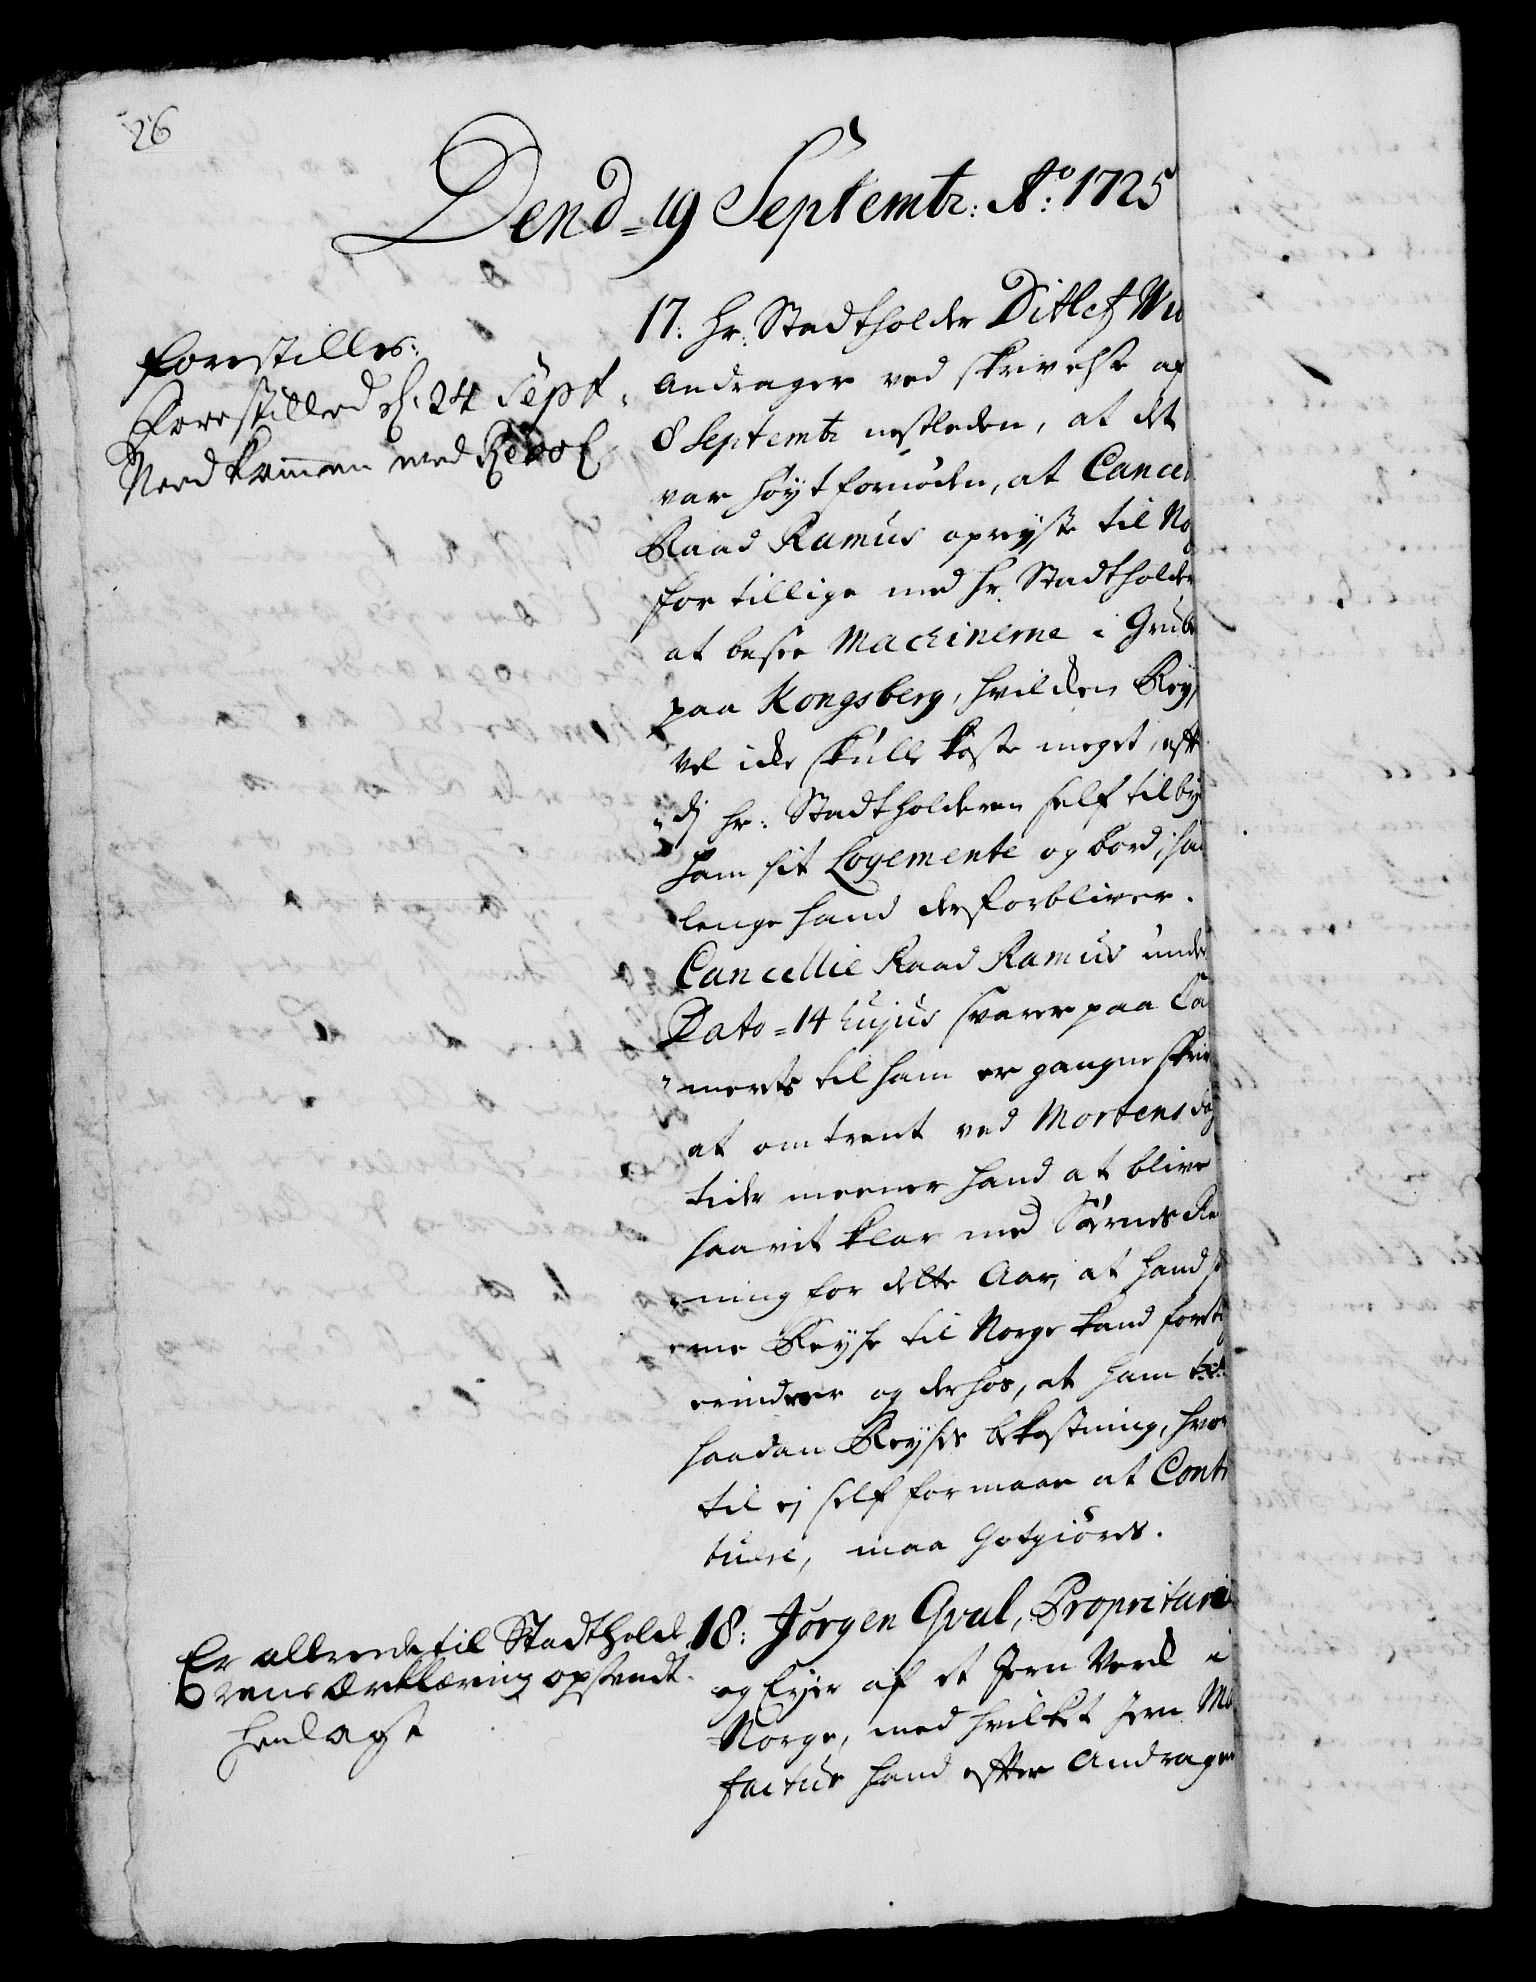 26
Dend = 19 Septembr: Aº: 1725
forestilles:
Forestilled d. 24 Sept.
Nedkommen med Resol
17: Hr: Stadtholder Ditlef Wi
Andrager ved skrivelse af
8 Septembr nestleden, at det
var høyt fornøden, at Cancel
Raad Ramus opreyste til No
for tillige med Hr. Stadtholder
at besee Machinerne i Grube
paa Kongsberg, hvilcken Rey
vel icke skulle koste meget, eft
di Hr. Stadtholderen self tilby
ham sit Logemente og bord, saa
lenge hand der forbliver.
Cancellie Raad Ramus under
Dato = 14 hujus svarer paa Ca
merets til ham er gangne skri
at omtrent ved Mortens dag
tider meener hand at blive
saavit klar med Søernes
ning for dette Aar, at hand
me Reyse til Norge kand fort
erindrer og derhos, at ham
saadan Reyses bekostning, hvor
til ej self formaar at Conti
tuere, maa Gotgiøres.
Er allerede til Stadthold
rens Ærklæring opsendt.
Henlagt
18: Jørgen Gval, Propritari
og Ejer af et Jern Verck i
Norge, med hvilket Jern Ma
factur hand efter Andragen